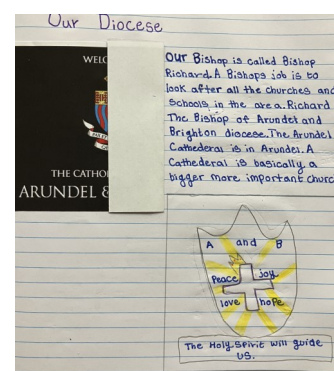 Our Diocese
WELC
THE CATHO
ARUNDEL &
Our Bishop is called Bishop
Richard. A Bishops job is to
look after all the churches and
schools in the area. Richard
The Bishop of Arundel and
Brighton diocese. The Arundel
Cathederal is in Arundel. A
Cathederal is basically a
bigger more important churc
A and B
Peace joy
love hope
The Holy Spirit will guide
us.